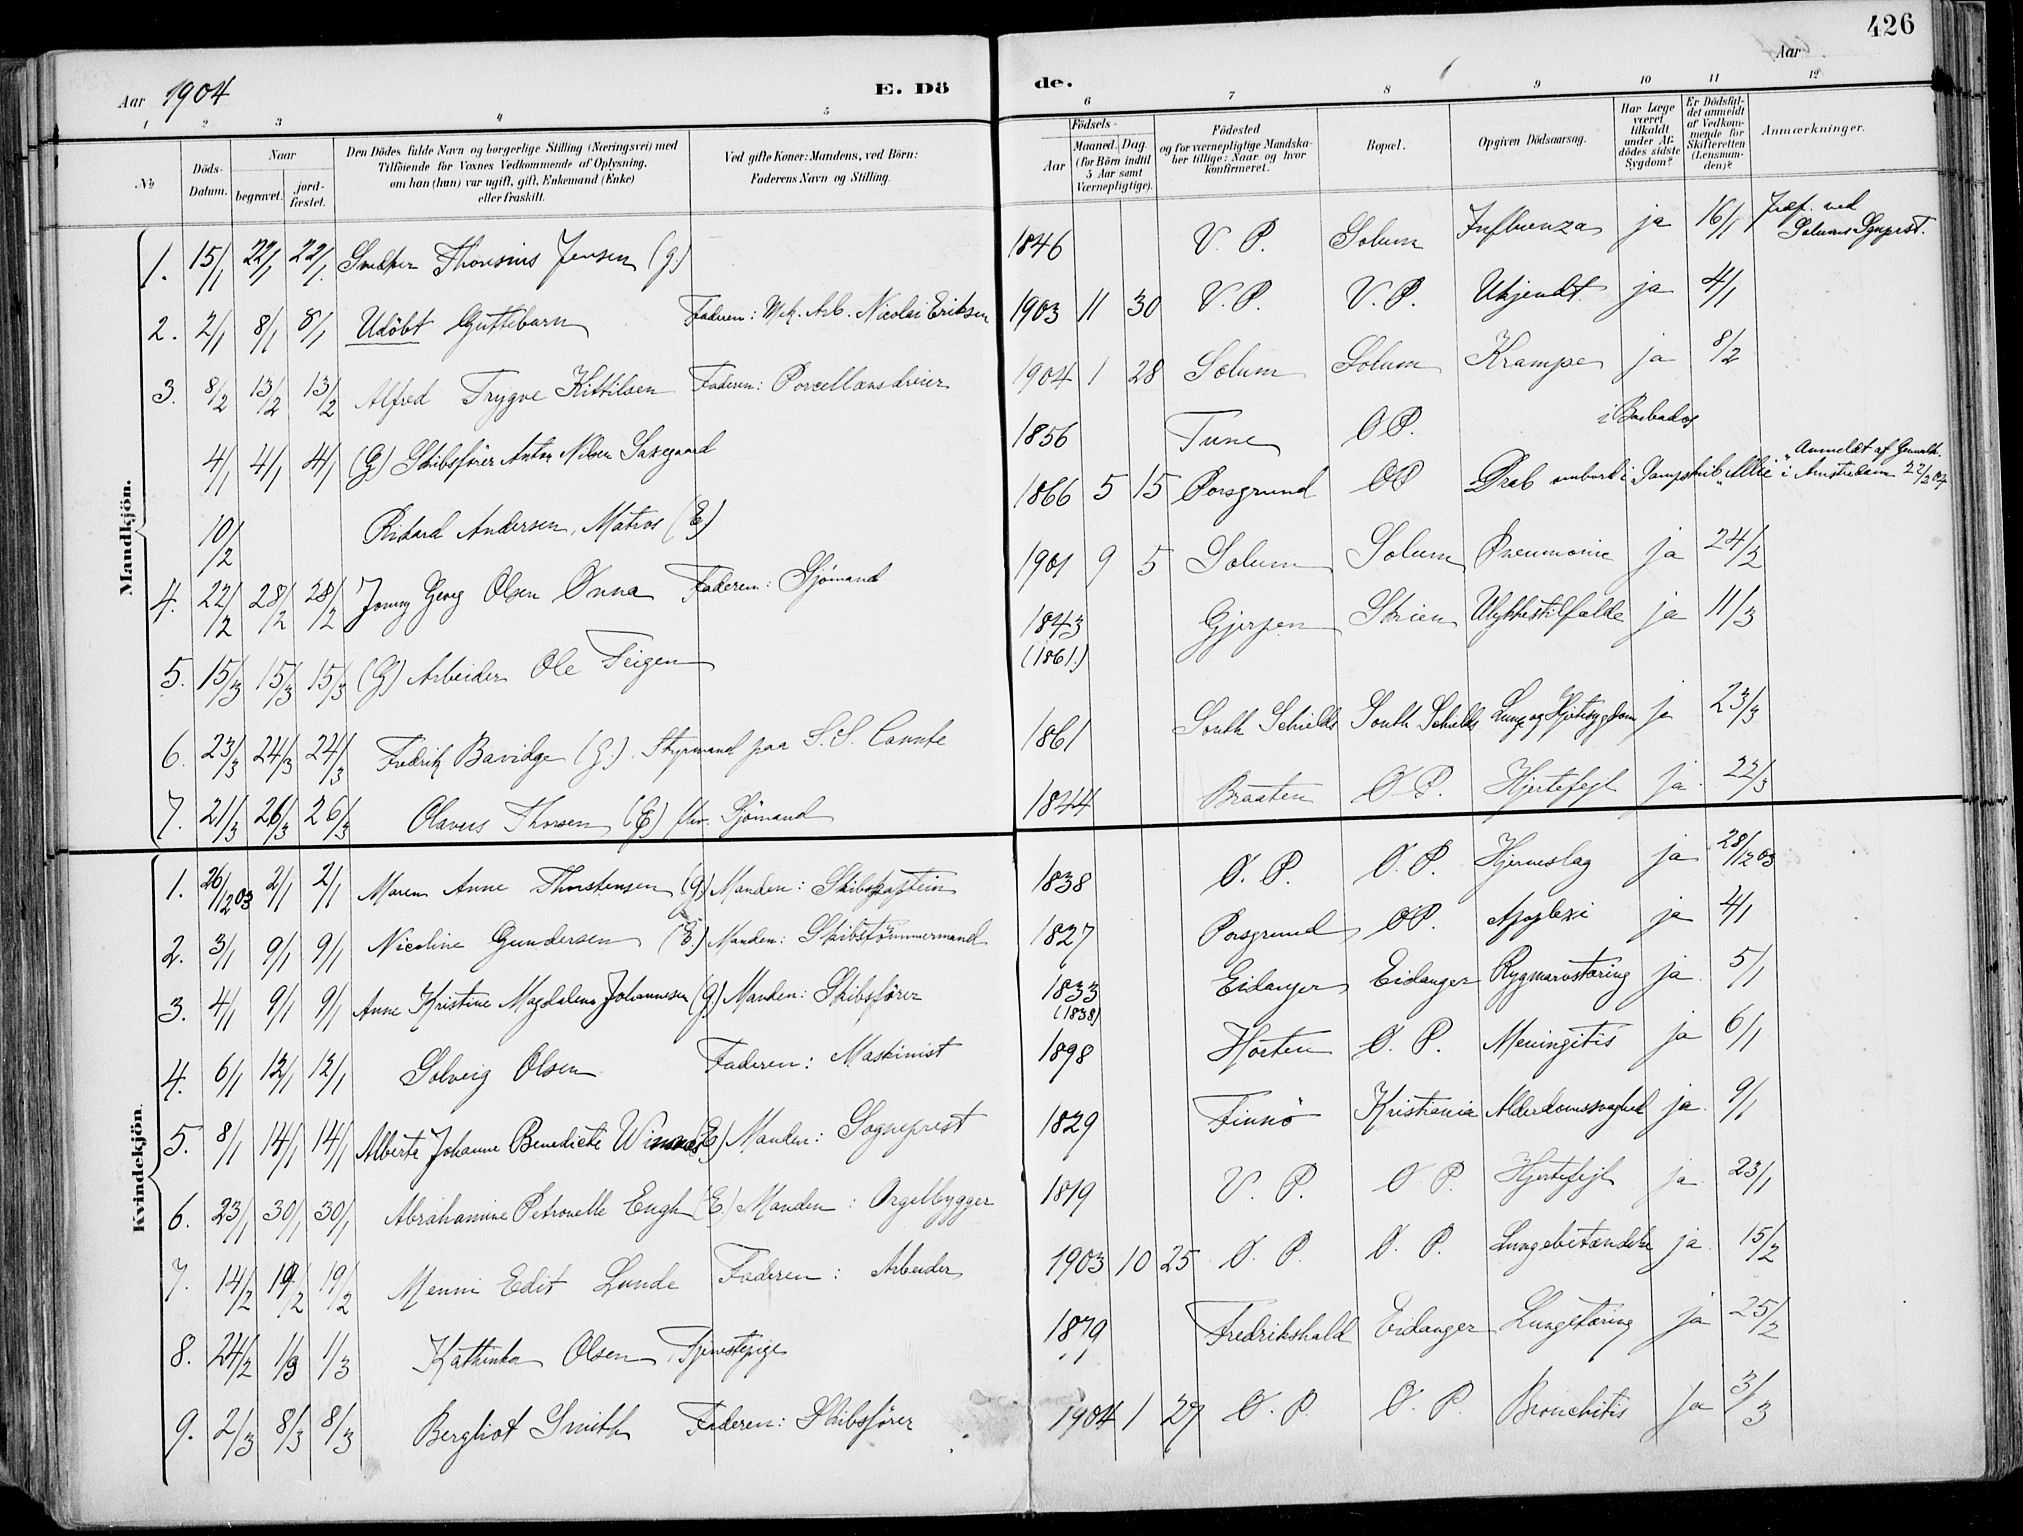 426
Aar 1904
E. Dö
de.
Aar
1 2 3 4 5 6 7 8 9 10 11 12
No
Döds-Datum.
Naar
begravet.
jord-fæstet.
Den Dödes fulde Navn og borgerlige Stilling (Næringsvei) med
Tilföiende for Voxnes Vedkommende af Oplysning,
om han (hun) var ugift, gift, Enkemand (Enke)
eller fraskilt.
Ved gifte Koner: Mandens, ved Börn:
Faderens Navn og Stilling.
Födsels-
Aar
Maaned. Dag.
(for Börn indtil
5 Aar samt
Værnepligtige).
Födested
og for værnepligtige Mandska-
ber tillige: Naar og hvor
konfirmeret.
Bopæl.
Opgiven Dödsaarsag.
Har Læge
været
tilkaldt
under Af-
dödes sidste
Sygdom?
Er Dödsfal-
det anmeldt
af Vedkom-
mende for
Skifteretten
(Lensman-
den)?
Anmærkninger.
Mandkjön.
1. 15/1 22/1 22/1 Snedker Thoresius Jensen (g.) 1846 V. P. Solum Influenza ja 16/1 Jrdf. ved Solums Sgnprst.
2. 2/1 8/1 8/1 Udöbt Guttebarn Faderen: Mek. Arb. Nicolai Eriksen 1903 11 30 V. P. V. P. Ukjendt ja 4/1
3. 8/2 13/2 13/2 Alfred Trygve Kittilsen Faderen: Porcellænsdreier 1904 1 28 Solum Solum Krampe ja 8/2
4/1 4/1 4/1 (G) Skibsförer Anton Nilsen Saxegaard 1856 Tune Ø P. i Barbados
10/2 Rikard Andersen, Matros (E) 1866 5 15 Porsgrund Ø P Drab ombord i Dampskib Anmeldt af i Amsterdam 22/2 04
4. 22/2 28/2 28/2 Jonny Georg Olsen Ønna Faderen: Sjömand 1901 9 5 Solum Solum Pneumonie ja 24/2
5. 15/3 15/3 15/3 (G) Arbeider Ole Feigen 1843 (1861.) Gjerpen Skien Ulykkestilfælde ja 11/3
6. 23/3 24/3 24/3 Fredrik Bavidge (G.), Styrmand paa S. S. 1861 South Schields South Schields Lunge og Hjertesygdom ja 23/3
7. 21/3 26/3 26/3 Olavus Thorsen (E) fhv. Sjömand 1844 Braaten Ø. P. Hjertefejl ja 22/3
Kvindekjön.
1. 26/12 03 2/1 2/1 Maren Anne Thorstensen (g.) Manden: Skibskaptein 1838 Ø. P. Ø. P. Hjerneslag ja 28/12 03
2. 3/1 9/1 9/1 Nicoline Gundersen (E) Manden: Skibstömmermand 1827 Porsgrund Ø P. Apoplexi ja 4/1
3. 4/1 9/1 9/1 Anne Kristine Magdalena Johannesen (g.) Manden: Skibsförer 1833 (1838) Eidanger Eidanger Rygmarvstæring ja 5/1
4. 6/1 12/1 12/1 Solveig Olsen Faderen: Maskinist 1898 Horten Ø. P. Meningitis ja 6/1
5. 8/1 14/1 14/1 Alberte Johanne Benedicte (E) Manden: Sogneprest 1829 Finnö Kristiania Alderdomssvaghed ja 9/1
6. 23/1 30/1 30/1 Abrahamine Petronelle Engh (E.) Manden: Orgelbygger 1819 V. P. Ø P. Hjertefejl ja 23/1
7. 14/2 19/2 19/2 Menni Edit Lunde Faderen: Arbeider 1903 10 25 Ø. P. Ø. P. Lungebetændelse ja 15/2
8. 24/2 1/3 1/3 Kathinka Olsen, Tjenestepige 1879 Fredrikshald Eidanger Lungetæring ja 25/2
9. 2/3 8/3 8/3 Bergliot Smith Faderen: Skibsförer 1904 1 27 Ø. P. Ø. P. Bronchitis Ja 3/3